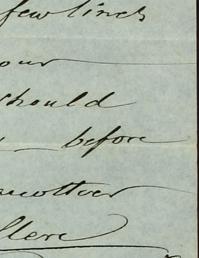 few lines
our
should
before
another